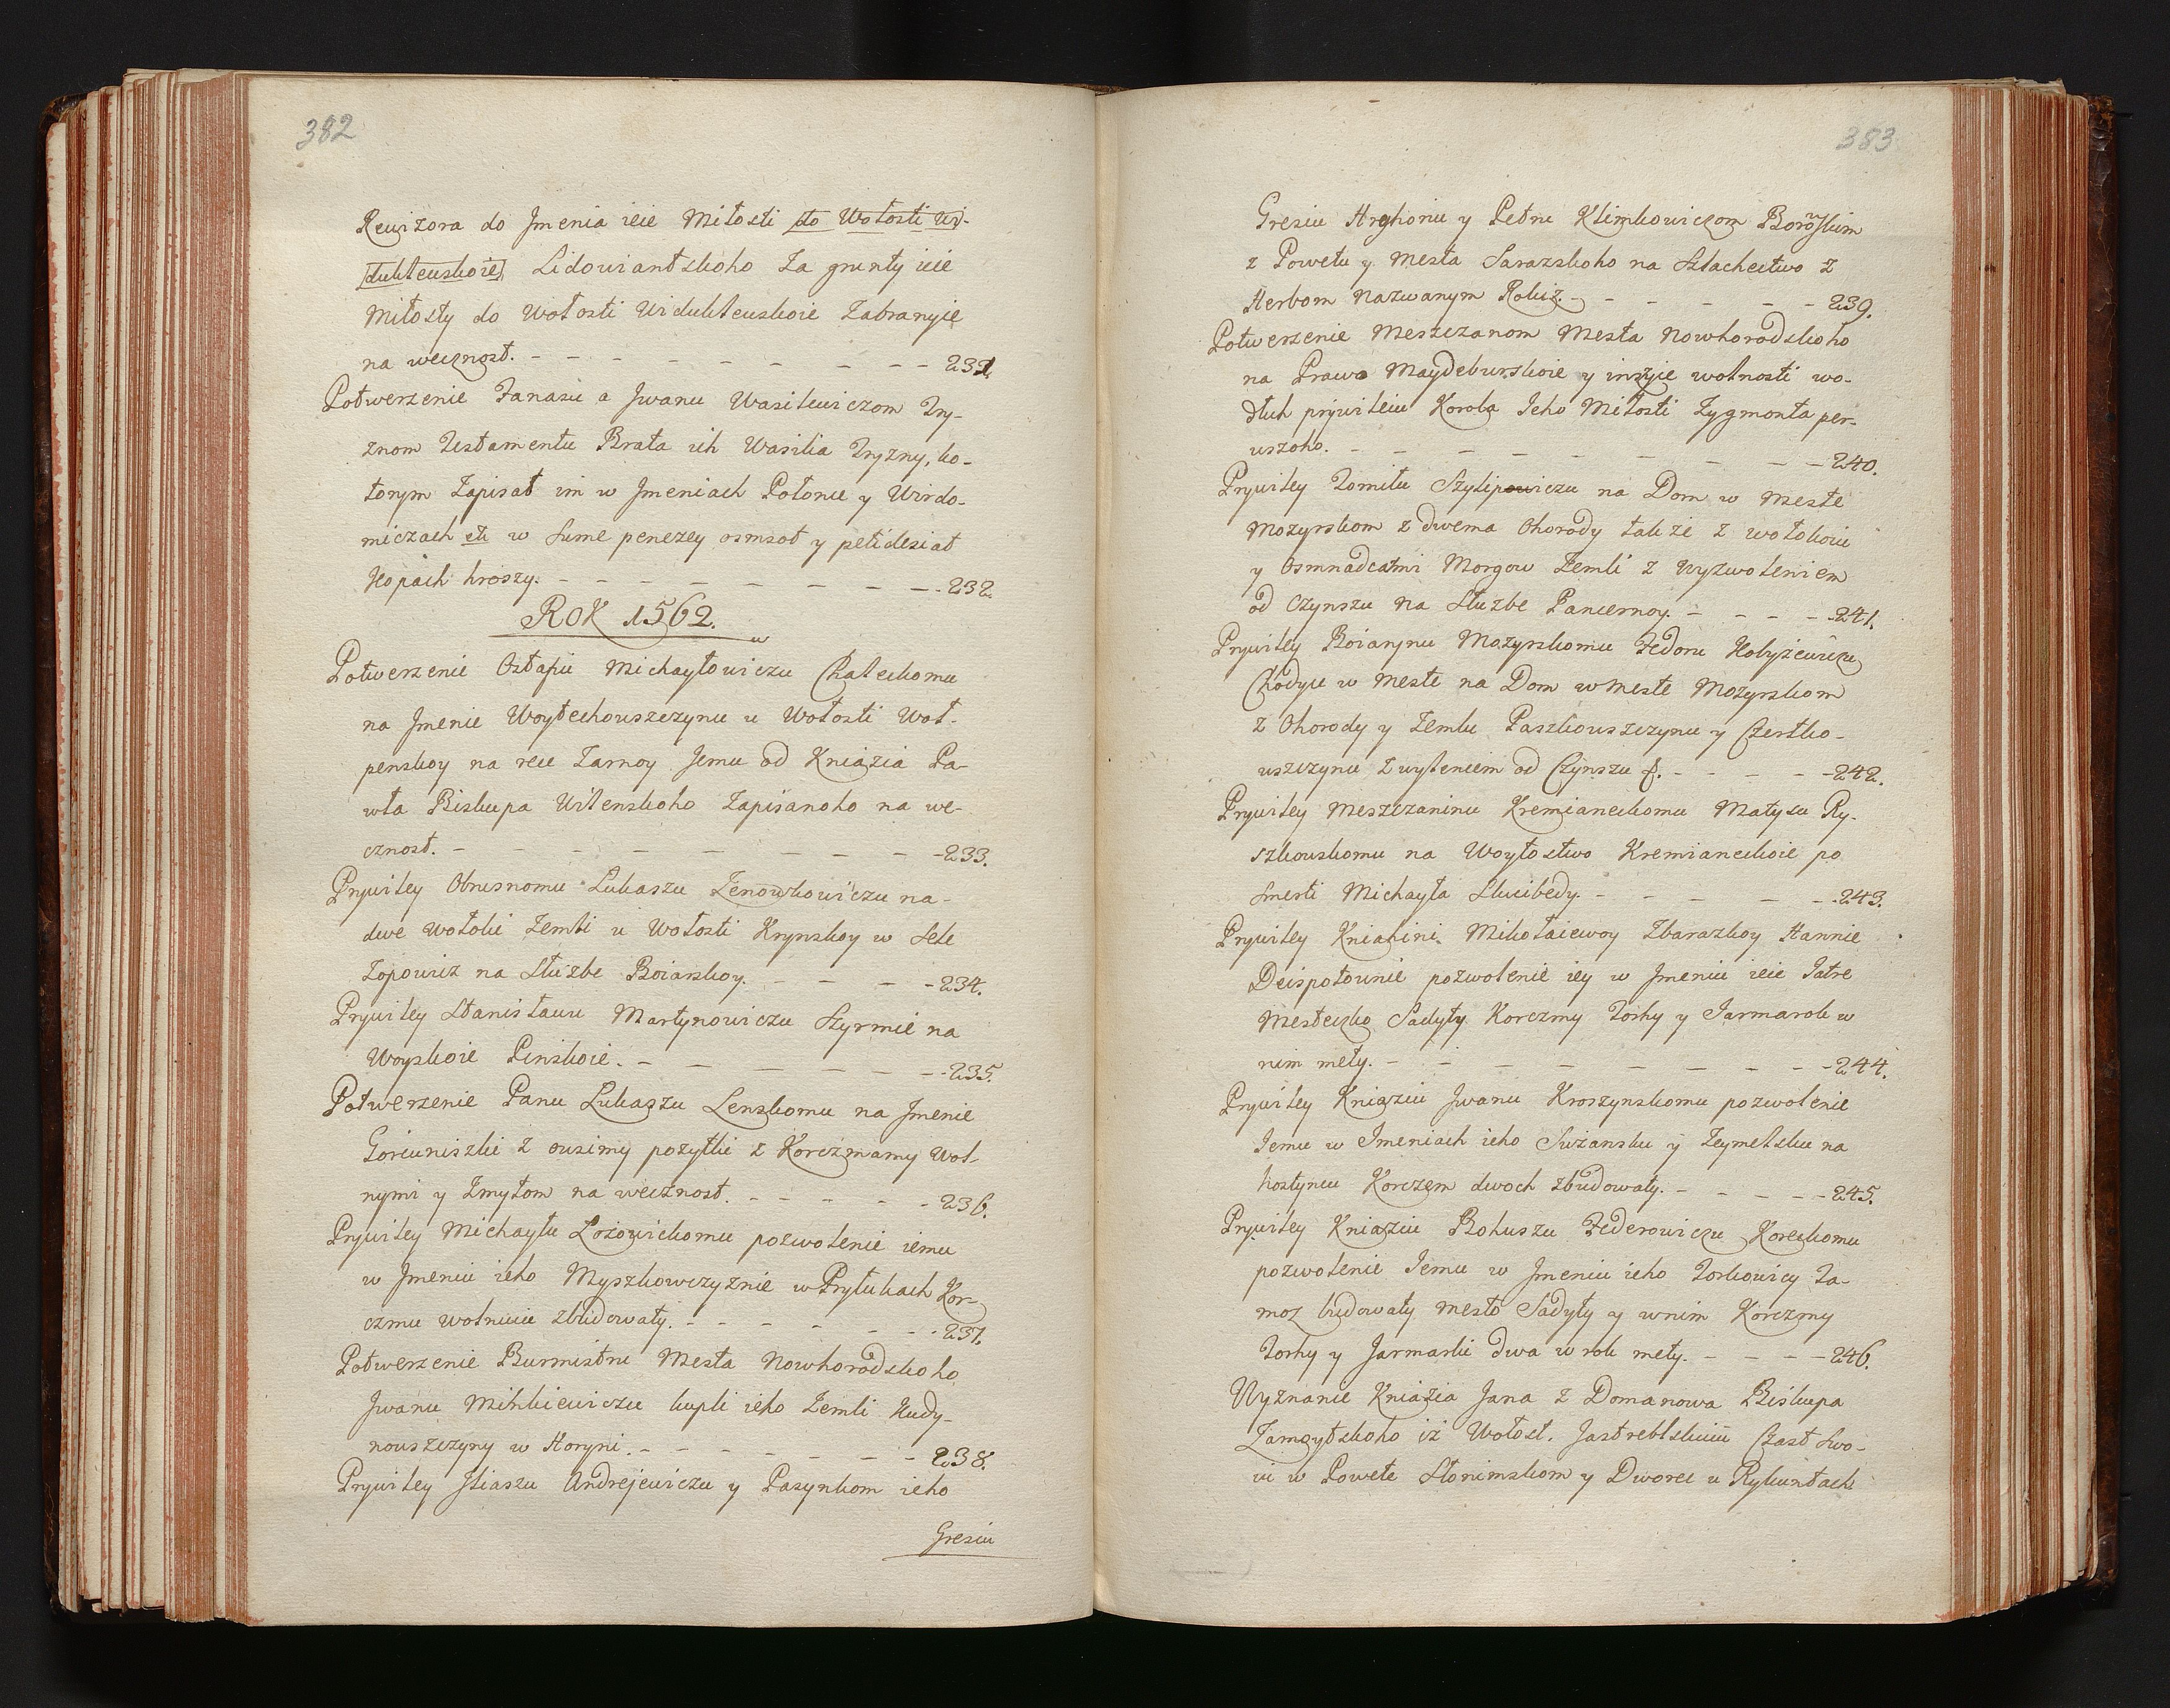 382
Rewizora do Jmenia ieie Miłosti do Wołosti Wi-
duklewskoie Lidowiantskoho Za grunty ieie
Miłosty do Wołosti Widuklewskoie Zabranyie
na wecznost. - - - - - - - - - 231.
Potwerzenie Fanasu a Jwanu Wasilewiczom Try-
znom Testamentu Brata ich Wasilia Tryzny, ko-
torym Zapisał im w Jmeniach Połonu y Wirdo-
miczach w Sume penezey osmsot y petidesiat
Kopach hroszy. - - - - - - - - 232.
ROK 1562.
Potwerzenie Ostafiu Michayłowiczu Chaleckomu
na Jmenie Woytechowszczynu u Wołosti Woł-
penskoy na rece Zarnoy Jemu od Kniazia Pa-
wła Biskupa Wilenskoho Zapisanoho na we-
cznost. - - - - - - - - - 233.
Prywiley Obrusnomu Lukaszu Zenowkowiczu na-
dwe Wołoki Zemli u Wołosti Krynskoy w Sele
Zopowicz na Służbe Boiarskoy. - - - 234.
Prywiley Stanisławu Martynowiczu Szyrmie na
Woyskoie Pinskoie. - - - - - - - 235.
Potwerzenie Panu Lukaszu Lenskomu na Jmenie
Goriuniszki z ousimy pozytki z Korczmamy Wol-
nymi y Zmytom na wecznost. - - - - - 236.
Prywiley Michayłu Łozowickomu pozwolenie iemu
w Jmeniu ieho Myszkowczyznie w Pryłukach Kor-
czmu wolnuiu zbudowaty. - - - - - - 237.
Potwerzenie Burmistru Mesta Nowhorodskoho
Jwanu Mihkiewiczu kupli ieho Zemli Kudy-
nowszczyny w Horyni. - - - - - - 238.
Prywiley Jliaszu Andrejewiczu y Pasynkom ieho
Gresiu
383
Gresiu Hrehoriu y Petru Klimkowiczom Borowskim
z Powetu y Mesta Sarazskoho na Szlachectwo z
Herbom Nazwanym Rolicz. - - - - - 239.
Potwerzenie Meszczanom Mesta Nowhorodskoho
na Prawo Maydeburskoie y inszyie wolnosti wo-
dłuh prywileiu Korola Jeho Miłosti Zygmonta per-
wszoho. - - - - - - - - - 240.
Prywiley Tomiłu Szylipowiczu na Dom w Meste
Mozyrskom z dwema Ohorody także z wołokoiu
y Osmnadcatmi Morgow Zemli z Wyzwoleniem
od Czynszu na Służbe Pancernoy. - - - - 241.
Prywiley Boiarynu Mozyrskomu Fedoru Kobyżewiczu
Chodycu w Meste na Dom w Meste Mozyrskom
z Ohorody y Zemlu Paszkowszczynu y Czertko-
wszczynu Z wyłeniem od Czynszu &. - - - - 242.
Prywiley Meszczaninu Kremianeckomu Matysu Ry-
szkowskomu na Woytostwo Kremianeckoie po
Smerti Michayła Skucibedy. - - - - - 243.
Prywiley Kniahini Mikołaiewoy Zbarazkoy Hannie
Deispotownie pozwolenie iey w Jmeniu ieie Jatre
Mesteczko Sadyty Korczmy Torhy y Jarmarok w
nim mety. - - - - - - - - 244.
Prywiley Kniaziu Jwanu Kroszynskomu pozwolenie
Iemu w Imeniach ieho Swżansku y Zeymelsku na
hostyncu Korczem dwoch zbudowaty. - - - - 245.
Prywiley Kniaziu Bohuszu Federowiczu Koreckomu
pozwolenie Iemu w Jmeniu ieho Torhowicy Za-
mok budowaty Mesto Sadyty y w nim Korczmy
Torhy y Jarmarki dwa w rok mety. - - - - 246.
Wyznanie Kniazia Jana z Domanowa Biskupa
Zamoytskoho iż Wołost. Jastreblskuiu Czast Swo-
iu w Powete Słonimskom y Dworec u Rykuntach